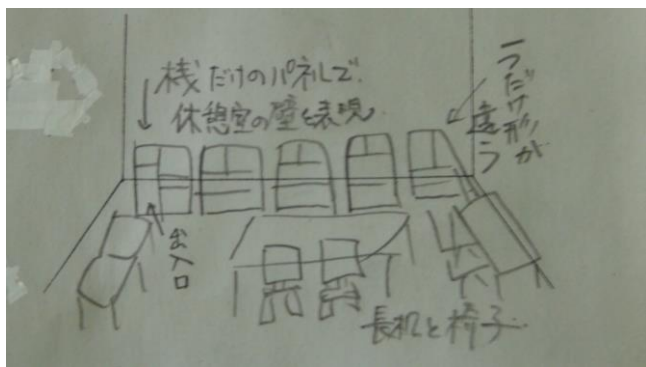 桟だけのパネルで
休憩室の壁を表現
一つだけ形が
違う
出入口
長机と椅子